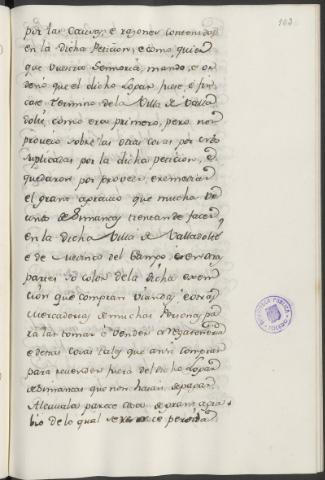 163
por las Causas, e razones contenidas
en la dicha Peticion; e como quier
que vuestra Señoria, mandó, e or
denó que el dicho Logar fuese, e fin
case termino de la Villa de Valla
dolid, como era primero, pero non
proveió sobre las otras cosas por
suplicadas por la dicha peticion, e
quedaron por proveer, e remediar
el grand agravio que
de Simancas facer
en la dicha Villa de Valladolid
e de Medina del Campo, e en otras
partes so color de la dicha exen
cion que compran viandas, e otras
Mercadurias, e muchas Personas pa
ra las tomar e vender
e de tras cosas tales que ansi compran
para revender fuera del dicho Logar
de Simancas que non haian de pagar
Alcavala, parece cosa de grand agra
bio de lo qual se perdida
BIBLIOTECA PUBLICA